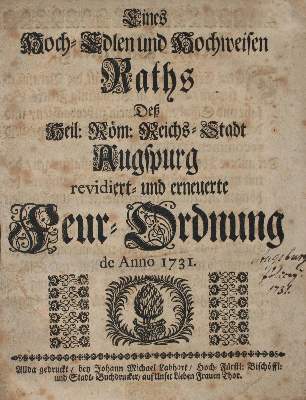 Eines
Hoch- Edlen und Hochweisen
Raths
Deß
Heil: Röm: Reichs- Stadt
Augspurg
revidiert- und erneuerte
Feur- Ordnung
de Anno 1731.
Augsburg
1731.
Allda gedruckt, bey Johann Michael Labhart, Hoch- Fürstl: Bischöffl:
und Stadt- Buchdrucker, auf Unser Lieben Frauen Thor.